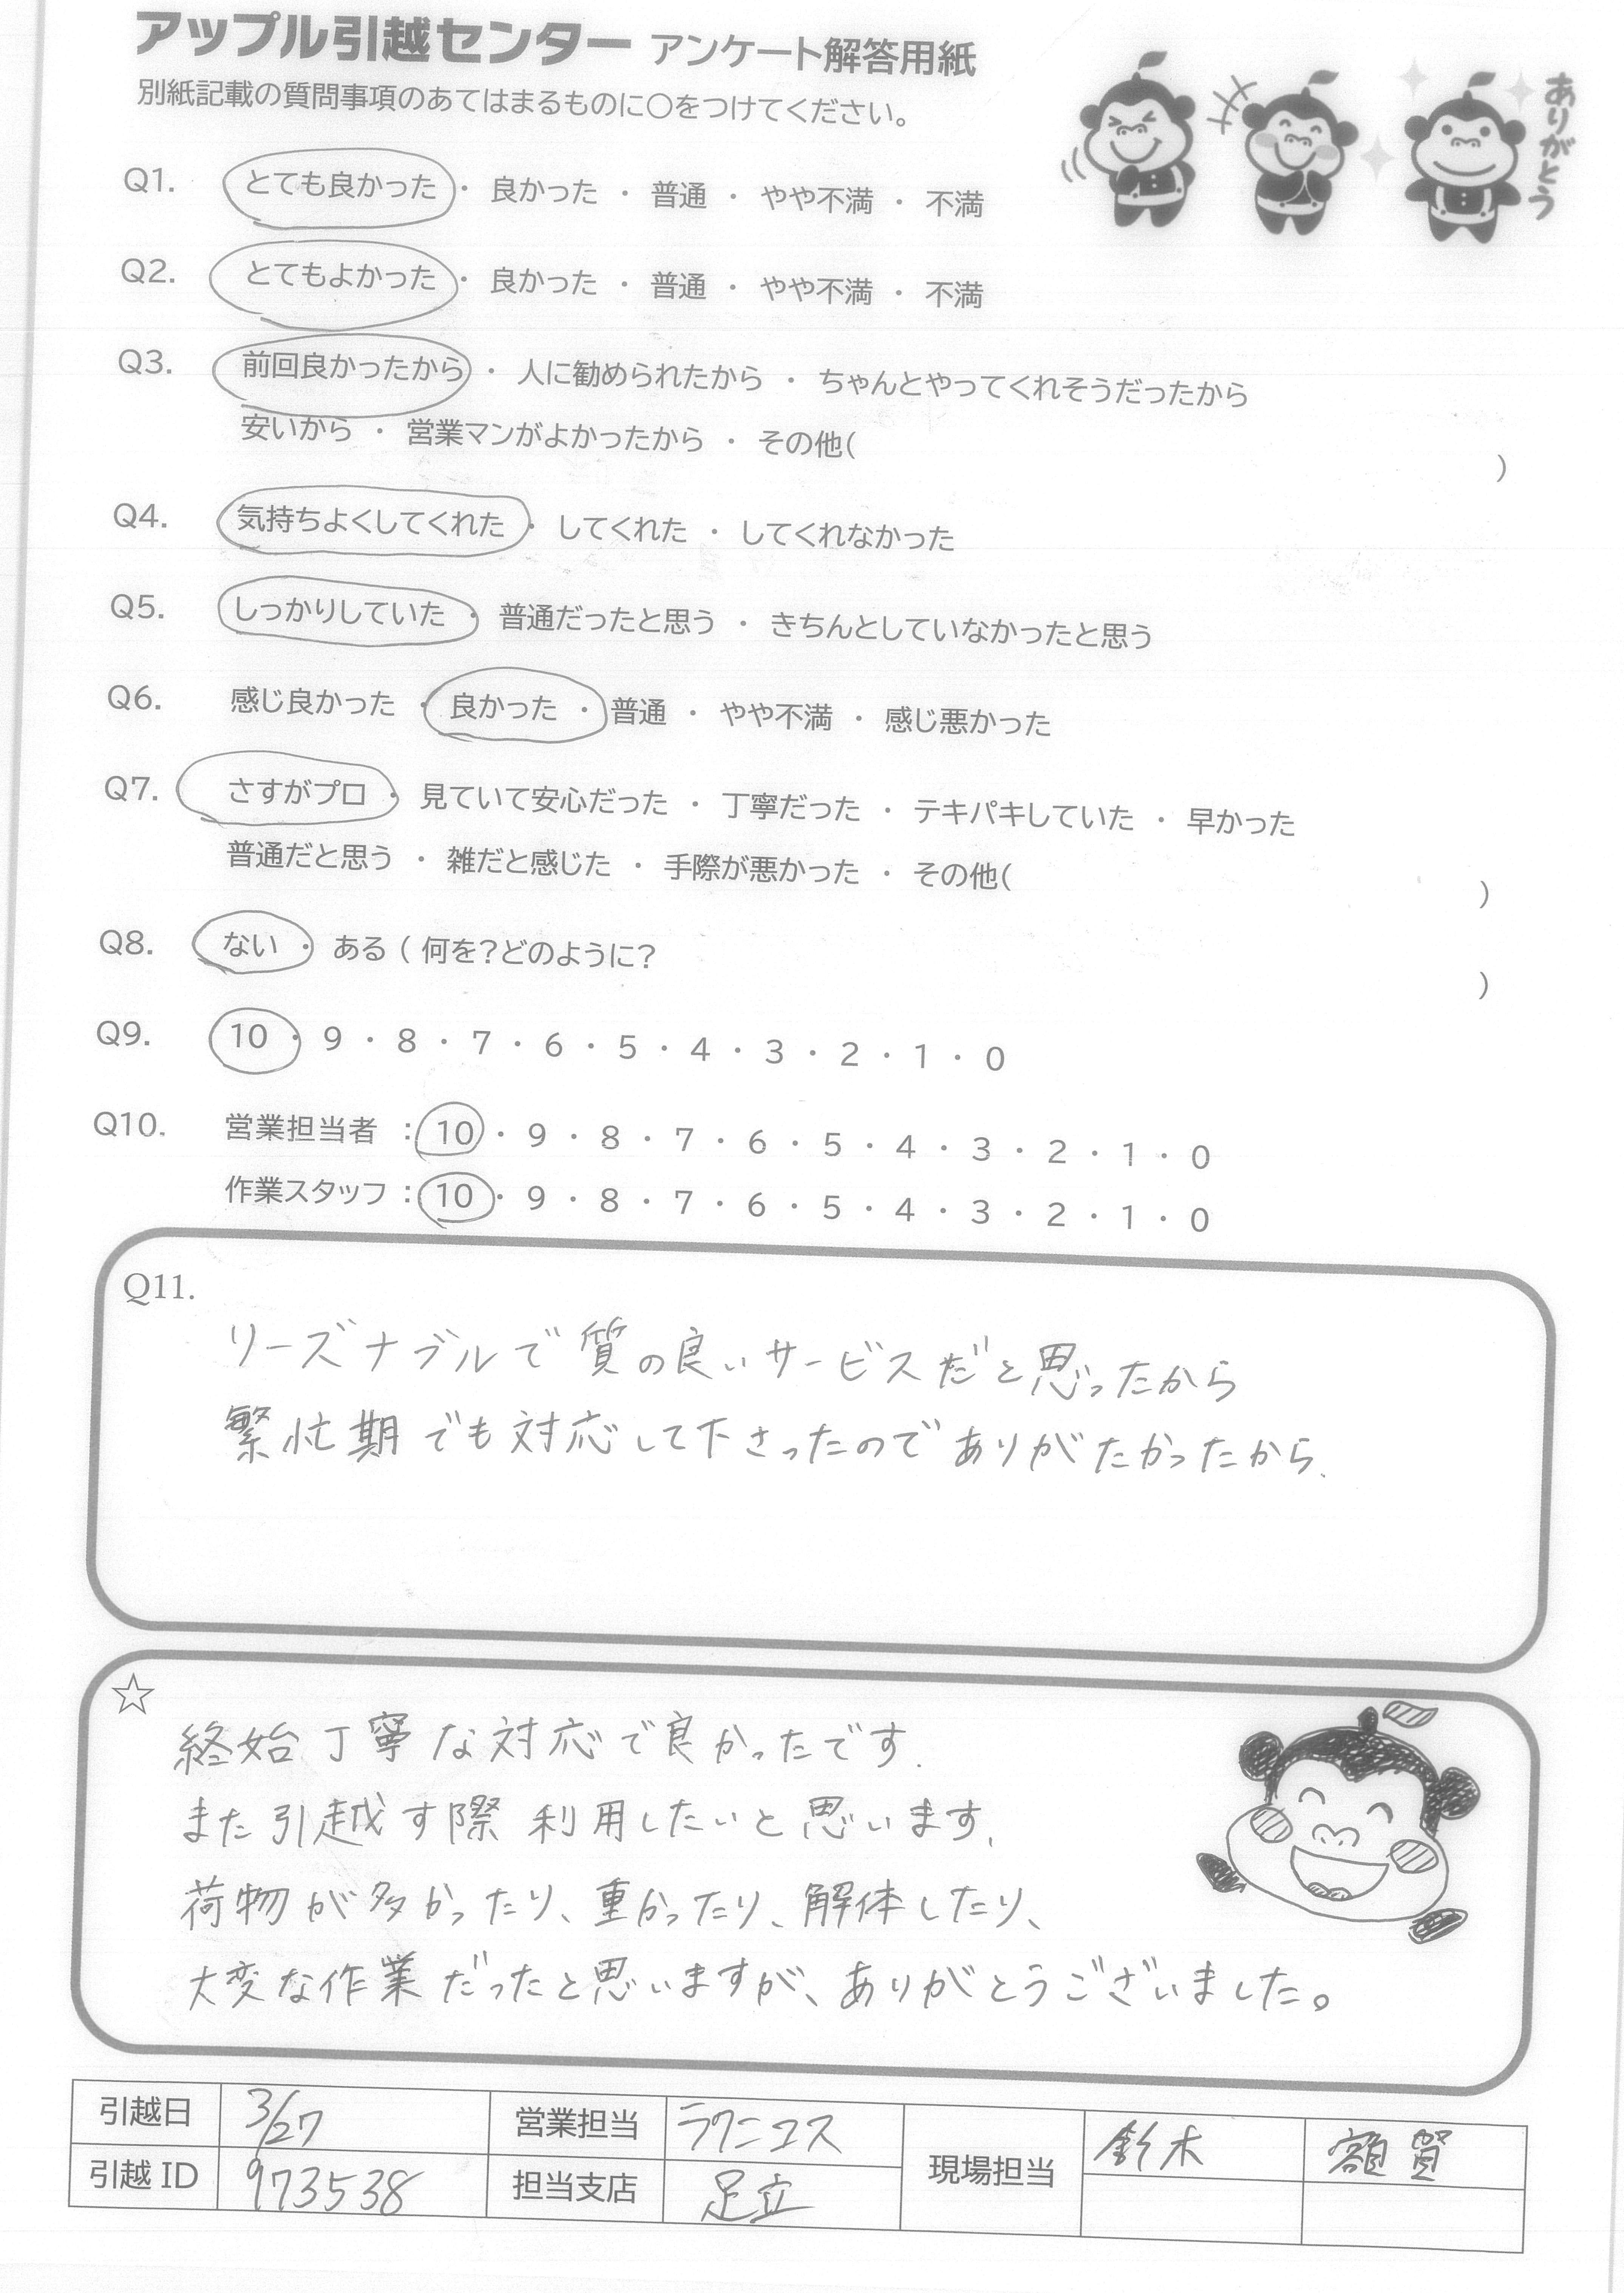 アップル引越センター アンケート解答用紙
別紙記載の質問事項のあてはまるものに○をつけてください。
ありがとう
Q1. とても良かった ・ 良かった ・ 普通 ・ やや不満 ・ 不満
Q2. とてもよかった ・ 良かった ・ 普通 ・ やや不満 ・ 不満
Q3. 前回良かったから ・ 人に勧められたから ・ ちゃんとやってくれそうだったから
安いから ・ 営業マンがよかったから ・ その他( )
Q4. 気持ちよくしてくれた ・ してくれた ・ してくれなかった
Q5. しっかりしていた ・ 普通だったと思う ・ きちんとしていなかったと思う
Q6. 感じ良かった ・ 良かった ・ 普通 ・ やや不満 ・ 感じ悪かった
Q7. さすがプロ ・ 見ていて安心だった ・ 丁寧だった ・ テキパキしていた ・ 早かった
普通だと思う ・ 雑だと感じた ・ 手際が悪かった ・ その他( )
Q8. ない ・ ある ( 何を?どのように? )
Q9. 10 ・ 9 ・ 8 ・ 7 ・ 6 ・ 5 ・ 4 ・ 3 ・ 2 ・ 1 ・ 0
Q10. 営業担当者 : 10 ・ 9 ・ 8 ・ 7 ・ 6 ・ 5 ・ 4 ・ 3 ・ 2 ・ 1 ・ 0
作業スタッフ : 10 ・ 9 ・ 8 ・ 7 ・ 6 ・ 5 ・ 4 ・ 3 ・ 2 ・ 1 ・ 0
Q11.
リーズナブルで質の良いサービスだと思ったから
繁忙期でも対応して下さったのでありがたかったから.
☆
終始丁寧な対応で良かったです.
また引越す際利用したいと思います.
荷物が多かったり、重かったり、解体したり、
大変な作業だったと思いますが、ありがとうございました。
引越日 3/27 営業担当 現場担当 鈴木 額賀
引越 ID 973538 担当支店 足立